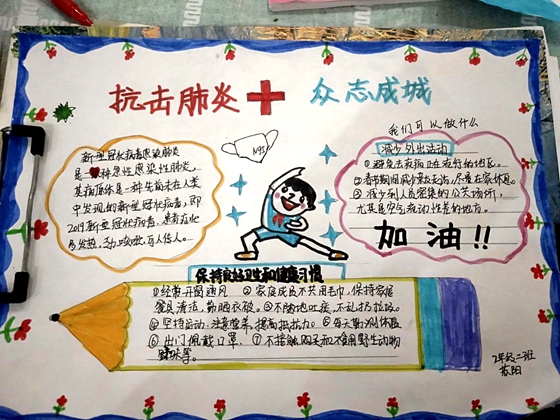 抗击肺炎 众志成城
新型冠状病毒感染肺炎
是一种急性感染性肺炎,
其病原体是一种先前未在人类
中发现的新型冠状病毒,即
2019新型冠状病毒,患者会出
N95
我们可以做什么
减少外出活动
①避免去疾病正在流行的地区。
②春节期间减少走亲访友,尽量在家休息。
③减少到人员密集的公共场所,
尤其是空气流动性差的地方。
加油!!
保持良好卫生和健康习惯
①经常开窗通风 ②家庭成员不共用毛巾,保持家居
餐具清洁,勤晒衣被。③不随地吐痰,不乱扔垃圾。
④坚持运动,注意营养,提高抵抗力。⑤每天勤测体温
⑥出门佩戴口罩。⑦不接触购买和不食用野生动物
野味等。
2年级二班